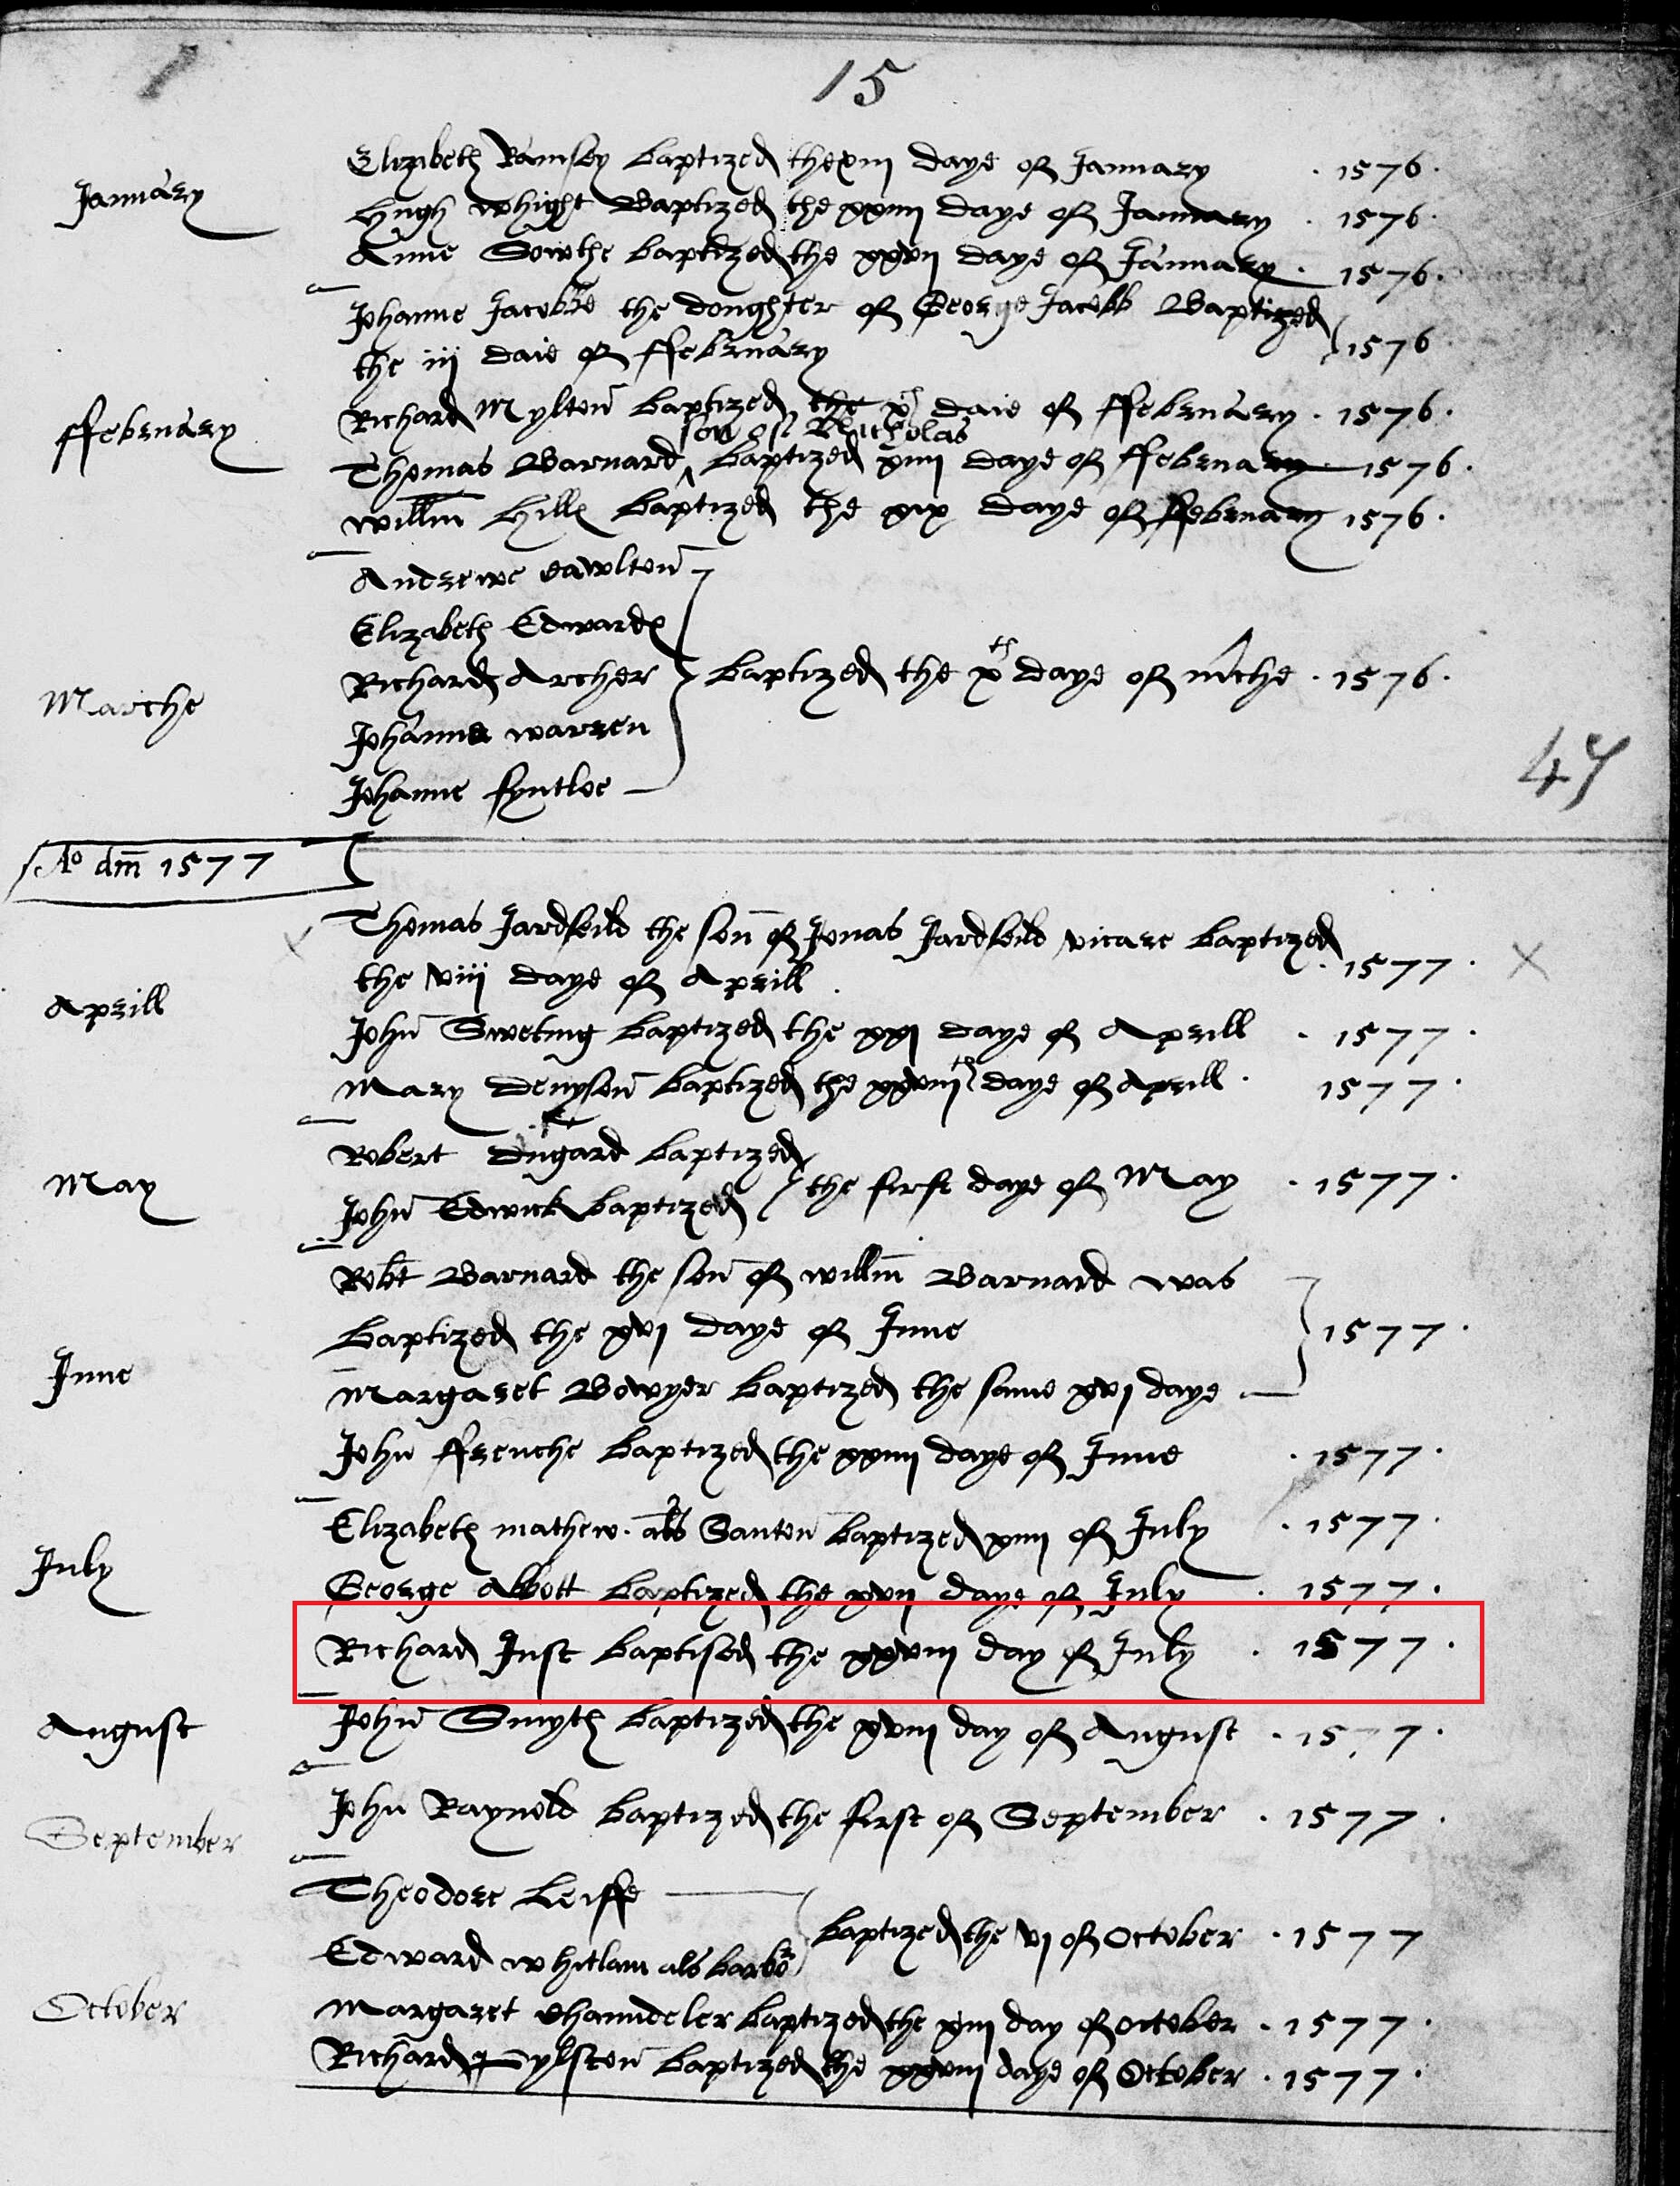 15
January
Elizibeth Ramsey baptized the xiii daye of January . 1576 .
Hugh Whight Baptized the xxiiii daye of January . 1576 .
Anne Sowthe baptized the xxvii daye of January . 1576 .
Johanne Jacobbe the doughter of George Jacobb Baptized
the iij daie of ffebruary 1576
ffebruary
Richard Mylton baptized the x daie of ffebruary . 1576 .
son of Nicholas
Thomas Barnard baptized xiiii daye of ffebruary 1576 .
Willm Hill baptized the xix daye of ffebruary 1576 .
Andrewe Cawlton
Elizabeth Edwards
Marche
Richard Archer baptized the xth daye of m̃che . 1576 .
Johanne Warren
Johanne Syntloe
47
Ao dm̄ 1577
Thomas Jardfeild the son of Jonas Jardfeild vicare baptized
the viij daye of Aprill . 1577 .
Aprill
John Sweting baptized the xxj daye of Aprill . 1577 .
Mary Denyson baptized the xxviiith daye of Aprill . 1577 .
May
Robert Dugard baptized
John Edwick baptized the first daye of May . 1577 .
Robt Barnard the son of Willm Barnard was
baptized the xvj daye of June 1577 .
June
Margaret Bowyer baptized the same xvj daye
John ffrenche baptized the xxiiii daye of June . 1577 .
July
Elizabeth Mathew als Santon baptized xiiii of July . 1577 .
George Abbott baptized the xvii daye of July . 1577 .
Richard Just baptised the xxviii day of July . 1577 .
August
John Smyth baptized the xviii day of August . 1577 .
September
John Raynold baptized the first of September . 1577 .
Theodore Leiffe
Edward Whitlam als barbor baptized the vj of October . 1577
October
Margaret Chaundeler baptized the xiii day of October . 1577 .
Richard baptized the xxviii daye of October . 1577 .